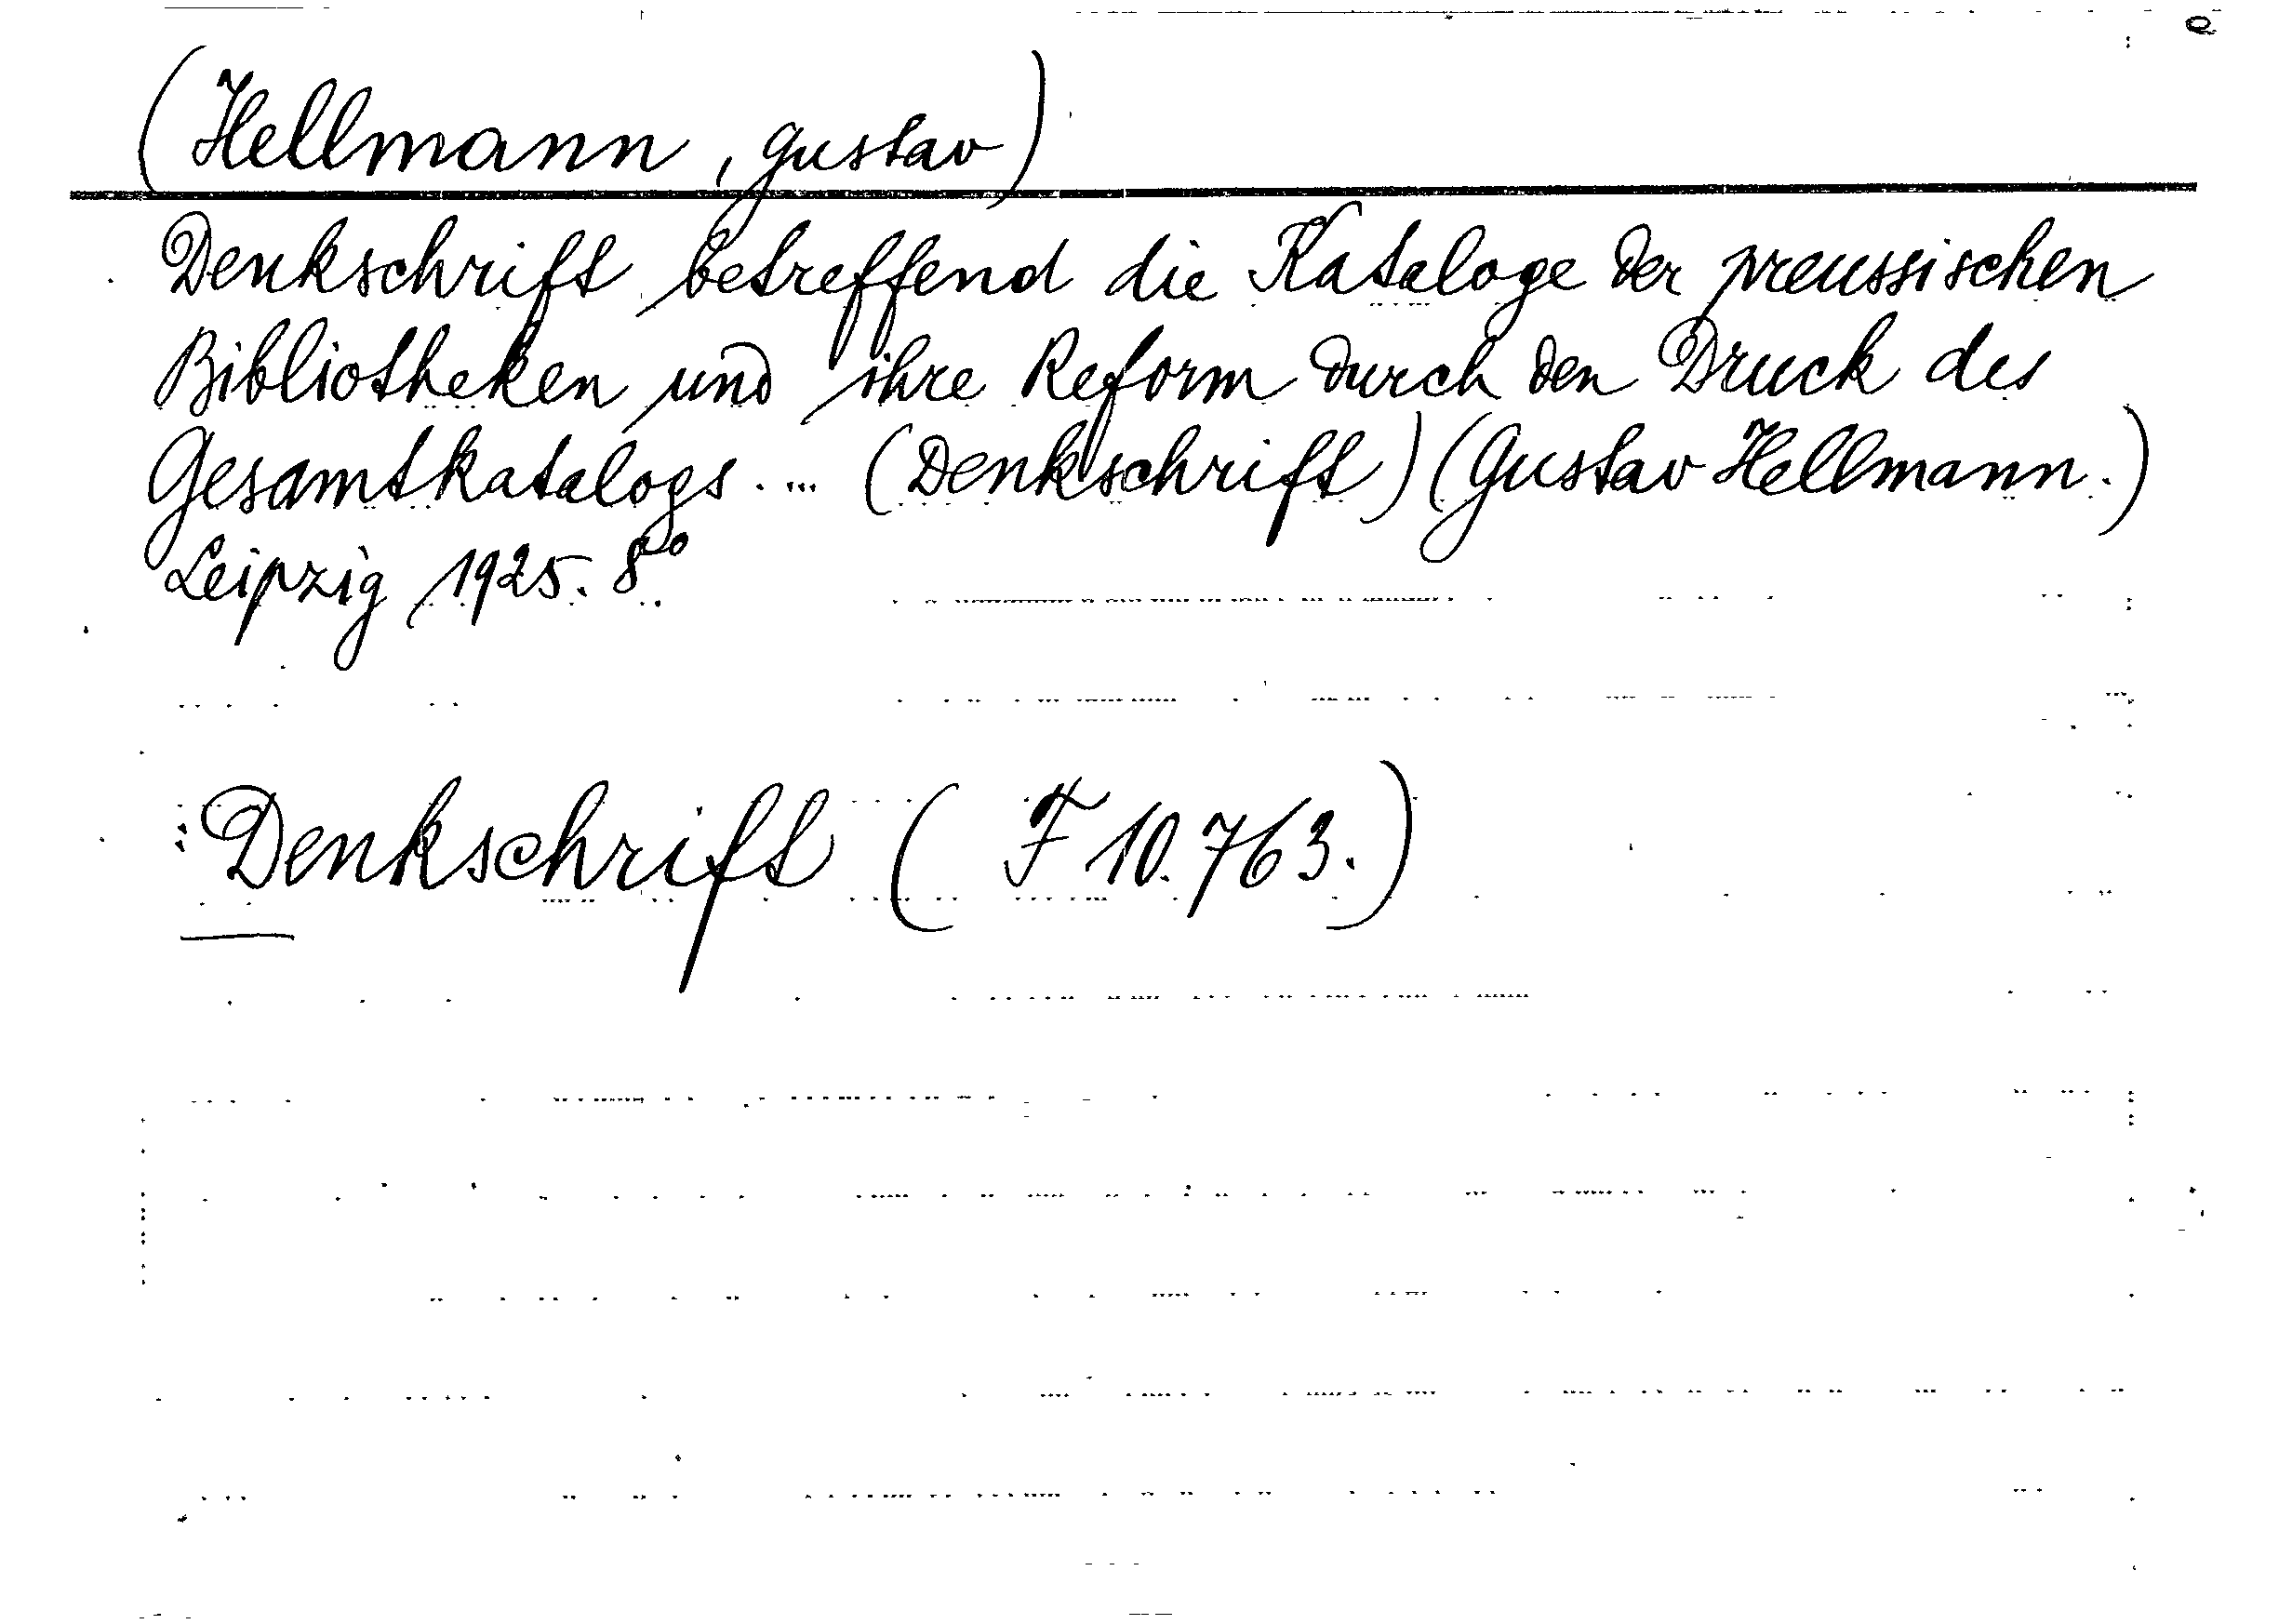 (Hellmann, Gustav)
Denkschrift betreffend die Kataloge der preussischen
Bibliotheken und ihre Reform durch den Druck des
Gesamtkatalogs. ... (Denkschrift) (Gustav Hellmann.)
Leipzig, 1925. 8°.
: Denkschrift ( F 10.763.)